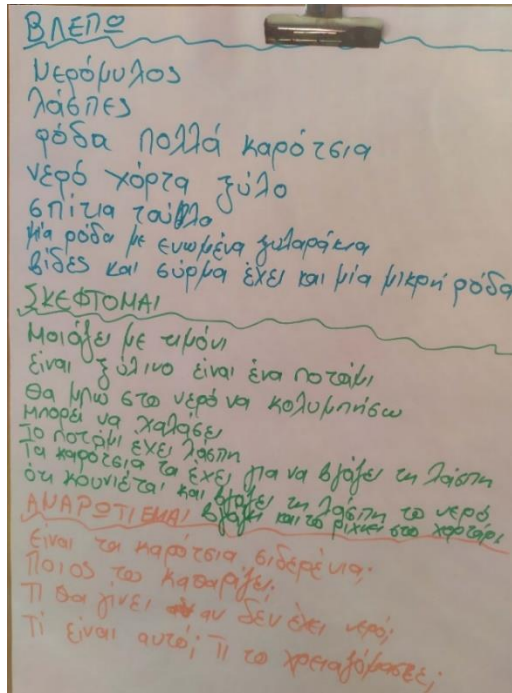 ΒΛΕΠΩ
Νερόμυλος
λάσπες
ρόδα πολλά καρότσια
νερό χόρτα ξύλο
σπίτια τούβλο
μία ρόδα με ενωμένα ξυλαράκια
βίδες και σύρμα έχει και μία μικρή ρόδα
ΣΚΕΦΤΟΜΑΙ
Μοιάζει με τιμόνι
είναι ξύλινο είναι ένα ποτάμι
Θα μπω στο νερό να κολυμπήσω
Μπορεί να χαλάσει
Το ποτάμι έχει λάσπη
Τα καρότσια τα έχει για να βγάζει τη λάσπη
ότι κουνιέται και βγάζει τη λάσπη το νερό
βγάζει και το ρίχνει στο χορτάρι
ΑΝΑΡΩΤΙΕΜΑΙ
είναι τα καρότσια σιδερένια;
Ποιος το καθαρίζει;
Τι θα γίνει αν δεν έχει νερό;
Τι είναι αυτό; Τι το χρειαζόμαστε;